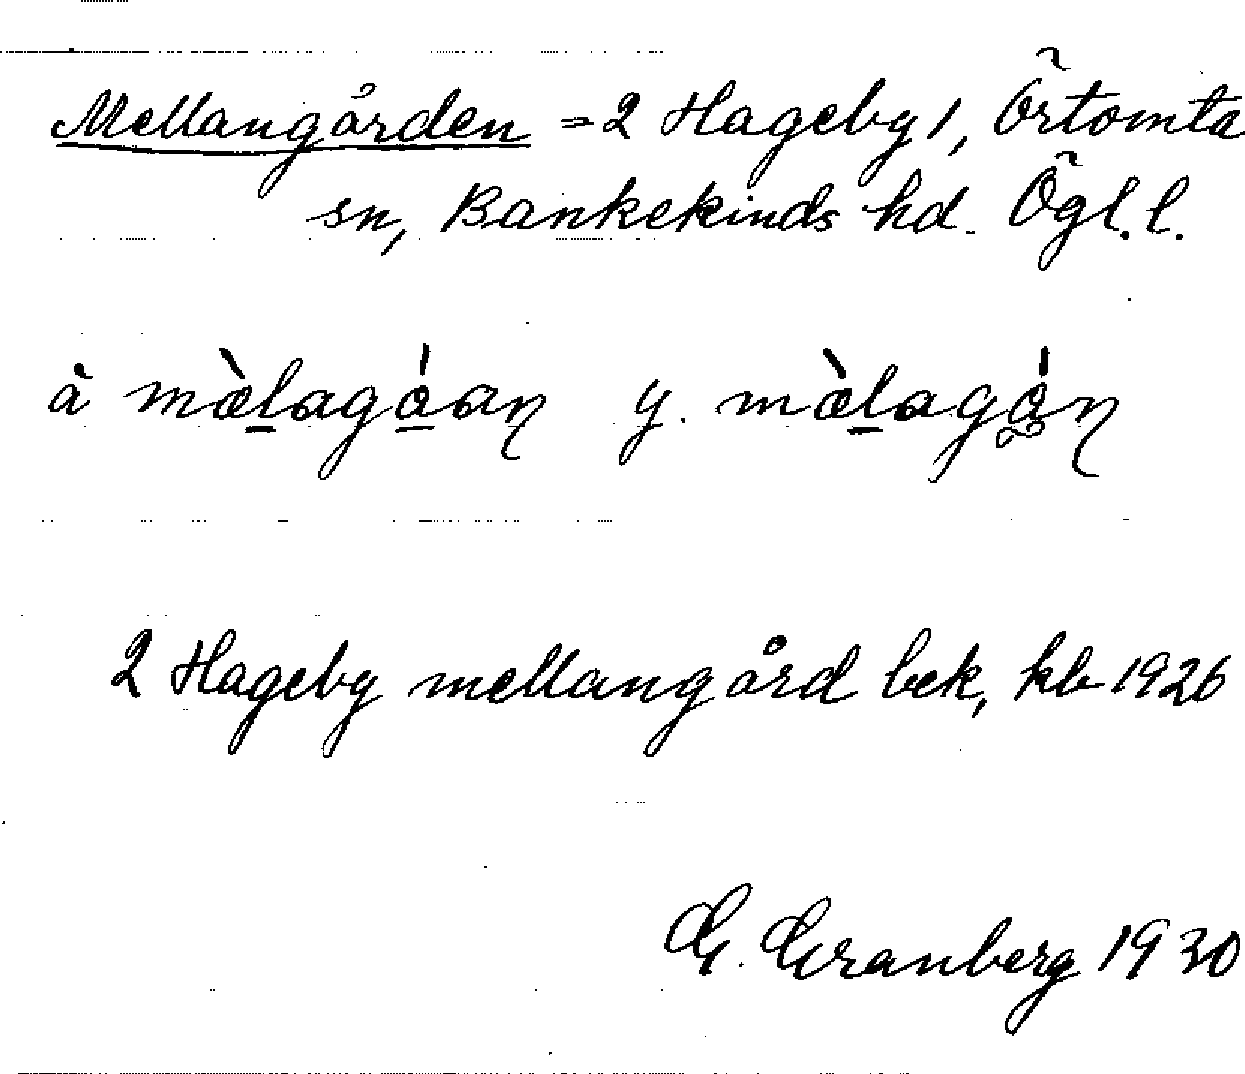 Mellangården = 2 Hageby 1, Örtomta
sn, Bankekinds hd. Ögl. l.
å mæ̀lagá̊an y. mæ̀lagá̊n
2 Hageby mellangård bek, kb 1926
G. Granberg 1930